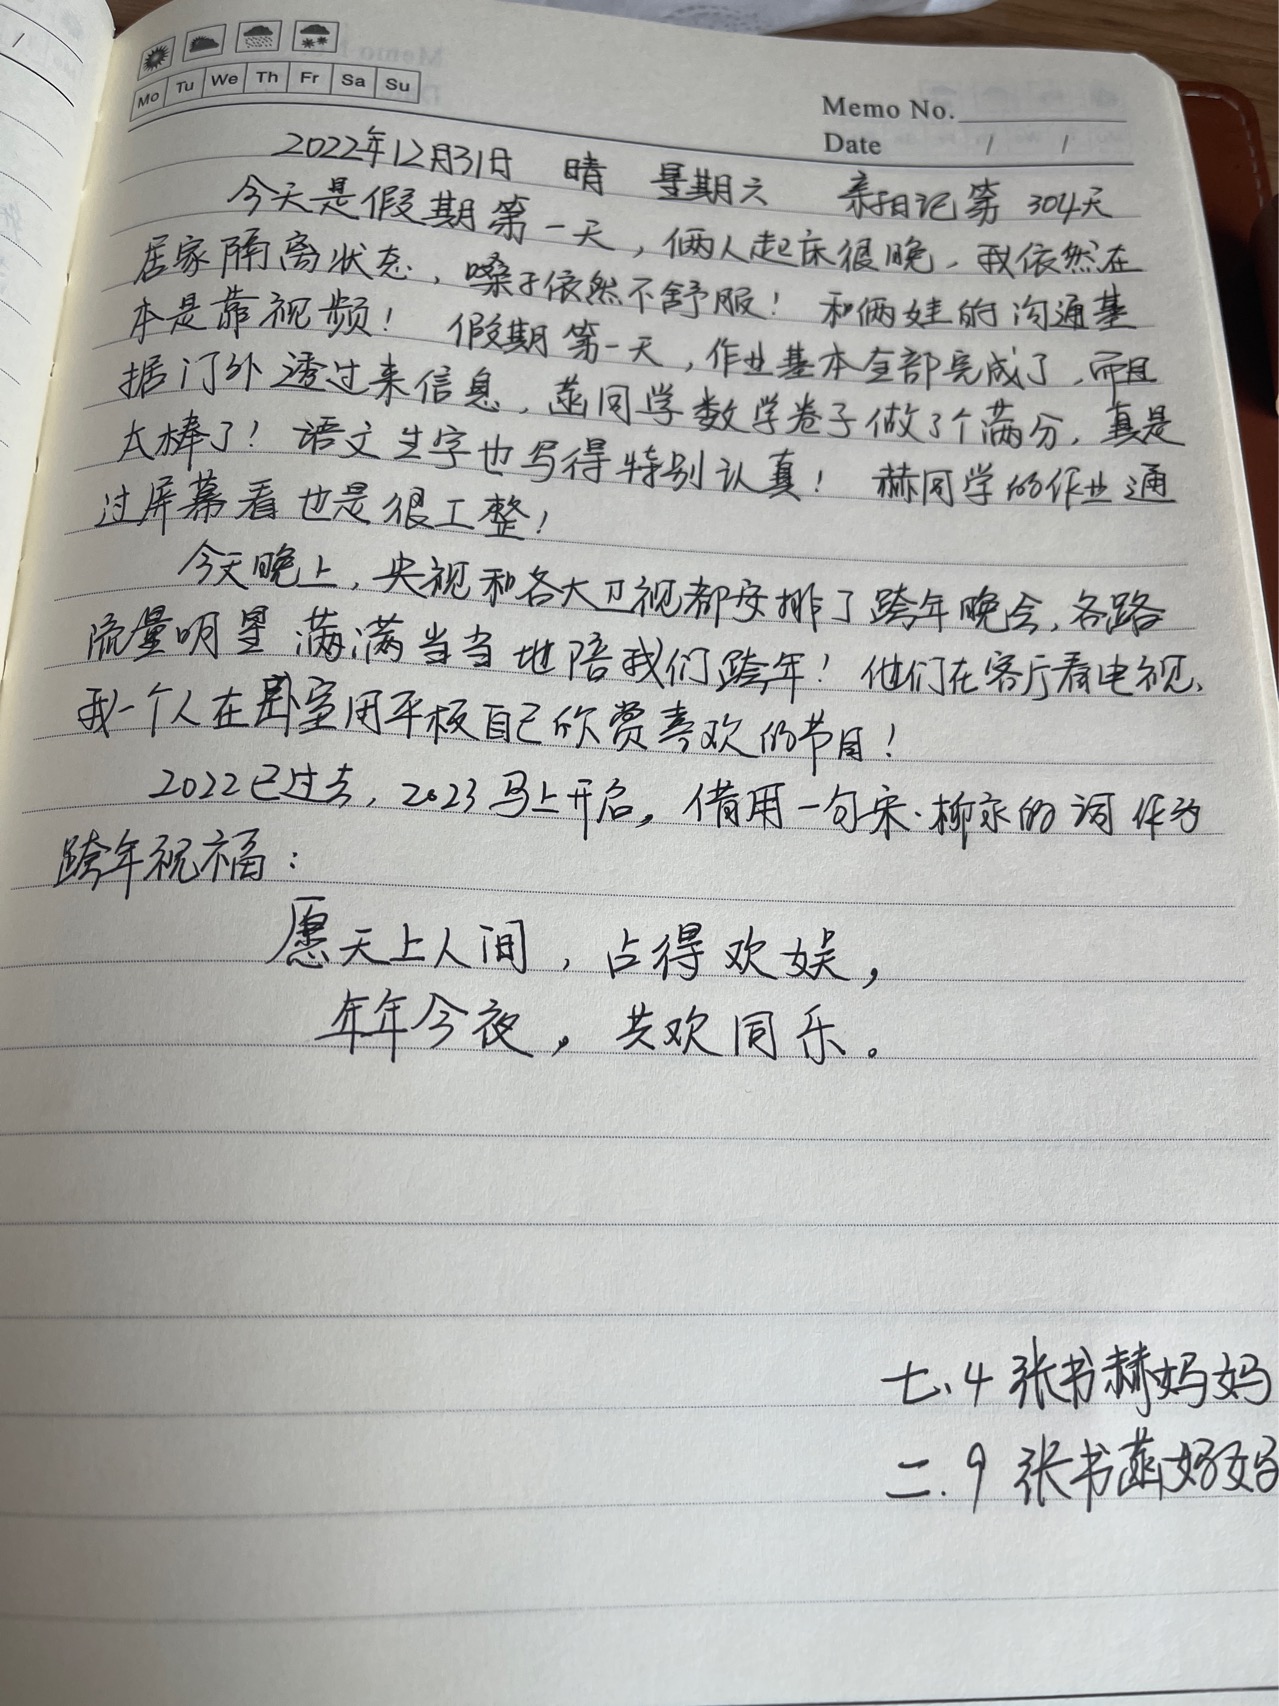 Mo Tu We Th Fr Sa Su
Memo No.
Date / /
2022年12月31日 晴 星期六 亲子日记第304天
今天是假期第一天，俩人起床很晚，我依然在
居家隔离状态，嗓子依然不舒服！和俩娃的沟通基
本是靠视频！假期第一天，作业基本全部完成了，而且
据门外透过来信息，菡同学数学卷子做了个满分，真是
太棒了！语文生字也写得特别认真！赫同学的作业通
过屏幕看也是很工整！
今天晚上，央视和各大卫视都安排了跨年晚会，各路
流量明星满满当当地陪我们跨年！他们在客厅看电视，
我一个人在卧室用平板自己欣赏喜欢的节目！
2022已过去，2023马上开启，借用一句宋·柳永的词作为
跨年祝福：
愿天上人间，占得欢娱，
年年今夜，共欢同乐。
七.4 张书赫妈妈
二.9 张书菡妈妈